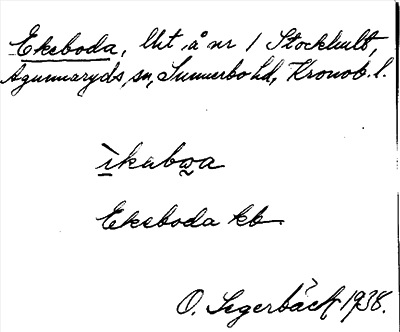 Ekeboda, lht å nr 1 Stockhult,
Agunnaryds sn, Sunnerbo hd, Kronob. l.
ìkabwa
Ekeboda kb
O. Segerbäck 1938.